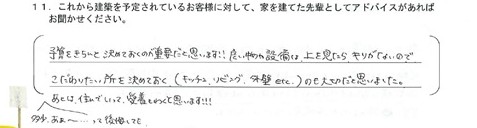 11．これから建築を予定されているお客様に対して、家を建てた先輩としてアドバイスがあれば
お聞かせください。
予算をきちんと決めておくのが重要だと思います!! 良い物や設備は上を見たらキリがないので
こだわりたい所を決めておく、(キッチン、リビング、外壁 etc.)のも大切だと思いました。
あとは、住んでいって、愛着もわくと思います!!!
多少、あぁ〜…って後悔しても